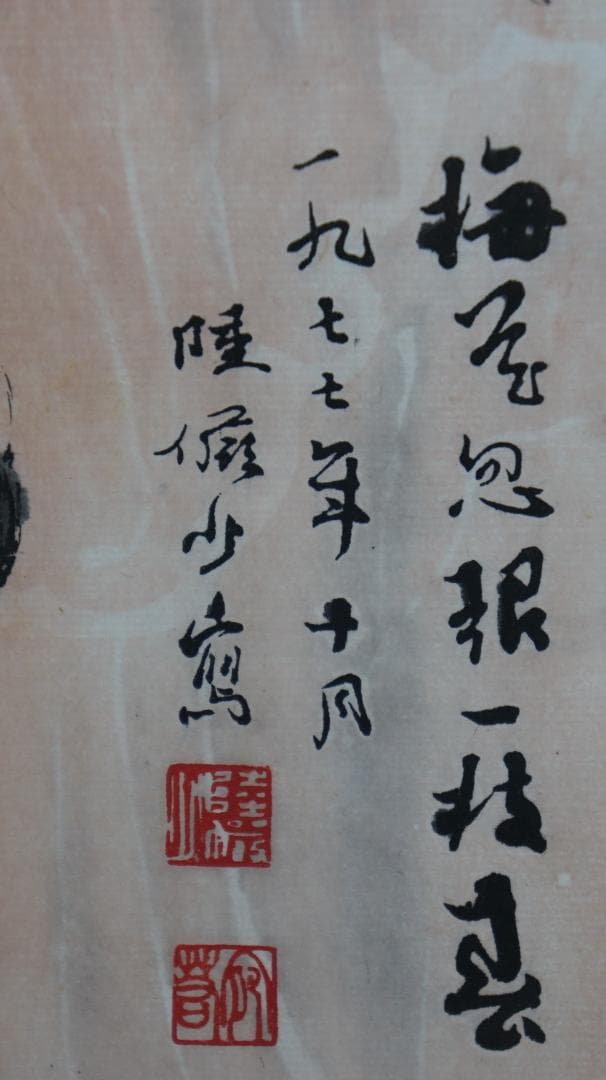 梅花忽一枝春
一九七七年十月
陸儼少寫
陸儼少
宛若